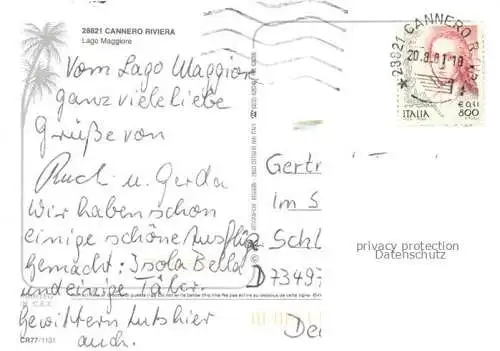 28821 CANNERO RIVIERA
Lago Maggiore
Vom Lago Maggiore
ganz viele liebe
Grüße von
Ruth u. Gerda
Wir haben schon
einige schöne Ausflüge
gemacht: Isola Bella
und einige Täler.
Gewittern tuts hier
auch.
CR77/1131
28821 CANNERO RIV
20.8.01-18
ITALIA
€ 0,41
800
Gertr
im S
Schl
D 73497
De
privacy protection
Datenschutz